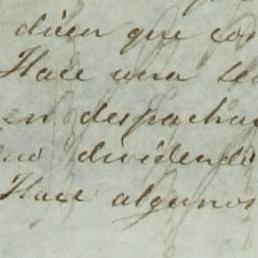 dicen que con
Hace una se
en despacha
dividendo
Hace algunos